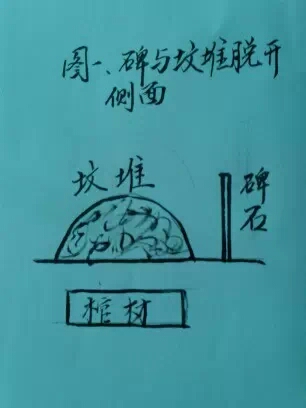 图一、碑与坟堆脱开
侧面
坟堆
碑石
棺材